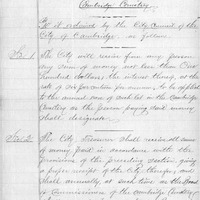 Cambridge Cemetery.
Be it ordained by the City Council of the
City of Cambridge, as follows:
Sec. 1. The City will receive from any person
any sum of money not less than One
hundred dollars, the interest thereof, at the
rate of six per centum per annum, to be applied
to the annual care of such lot in the Cambridge
Cemetery as the person paying said money
shall designate.
Sec. 2. The City Treasurer shall receive all sums
of money paid in accordance with the
provisions of the preceding section, giving
a proper receipt of the City therefor, and
shall annually at such time as the Board
of Commissioners of the Cambridge Cemetery